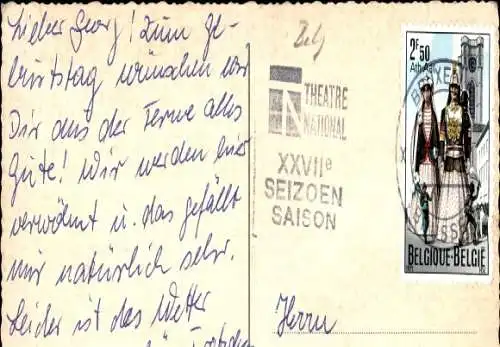 Lieber Georg! Zum Ge-
burtstag wünschen wir
Dir aus der Ferne alles
Gute! Wir werden hier
verwöhnt u. das gefällt
mir natürlich sehr.
Leider ist das Wetter
Belg
THEATRE
NATIONAL
XXVIIe
SEIZOEN
SAISON
2F50
Ath-Aat
BRUXEL
BELGIQUE-BELGIË
Herrn